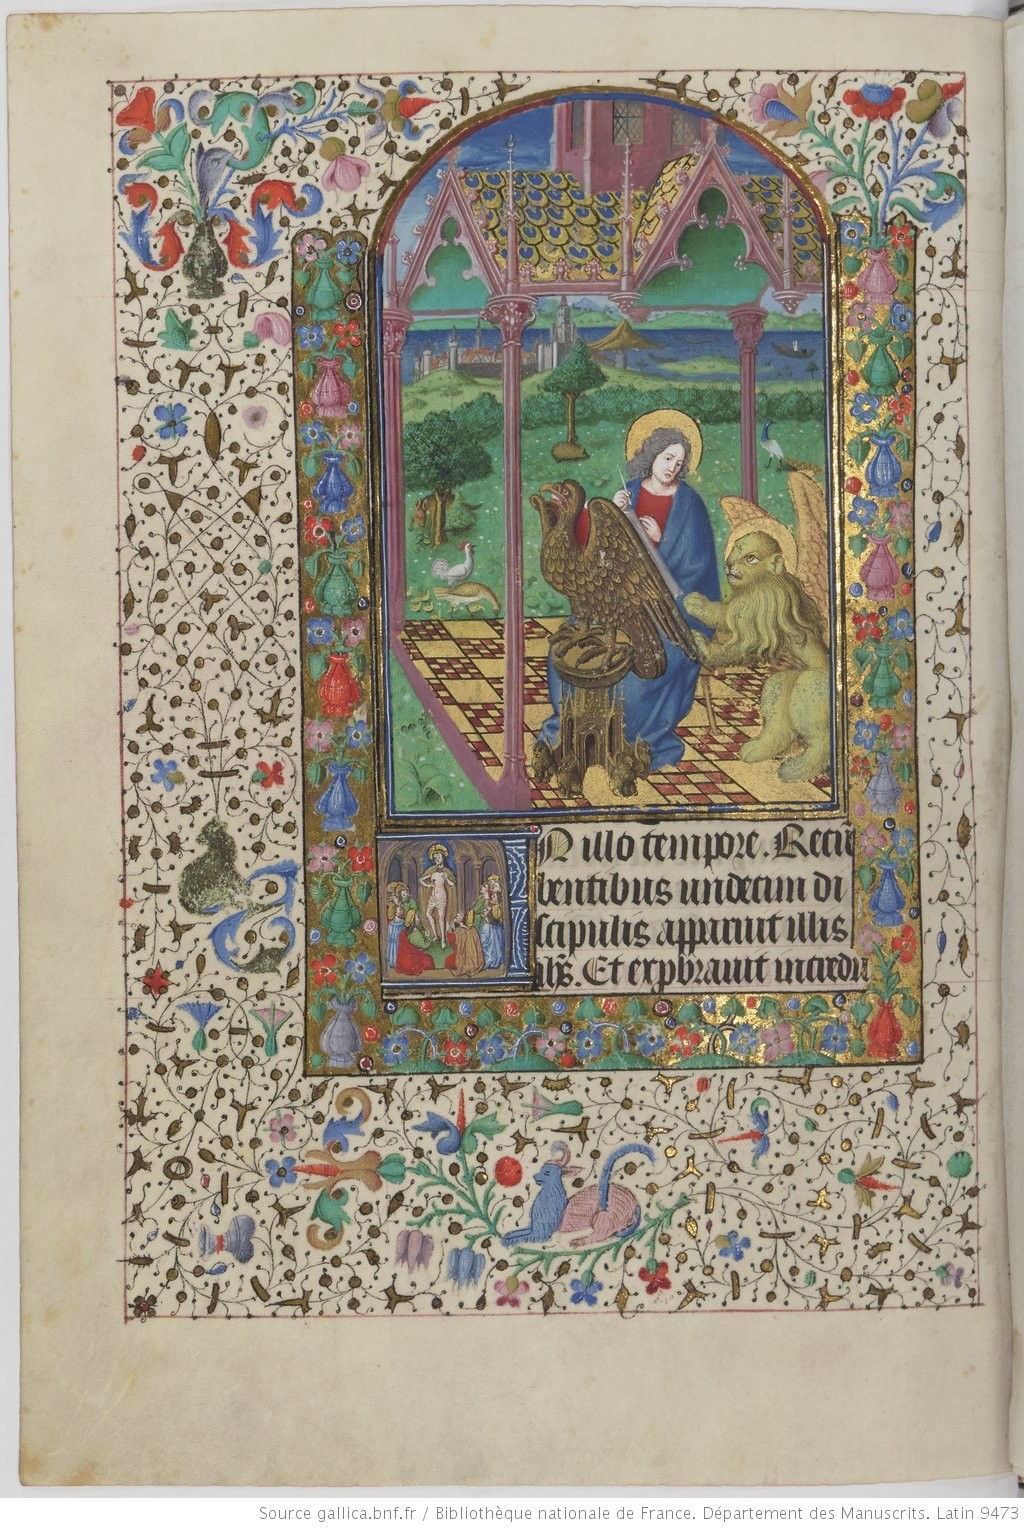 N illo tempore. Recu
bentibus undecim di
scipulis apparuit illis
ihs. Et exprobrauit incredu
Source gallica.bnf.fr / Bibliothèque nationale de France. Département des Manuscrits. Latin 9473